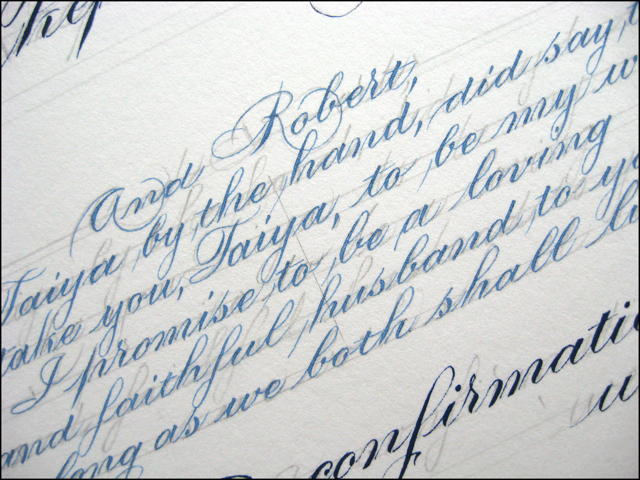 And Robert,
Taiya by the hand, did say
take you, Taiya, to be my
I promise to be a loving
and faithful husband to
long as we both shall
confirmati